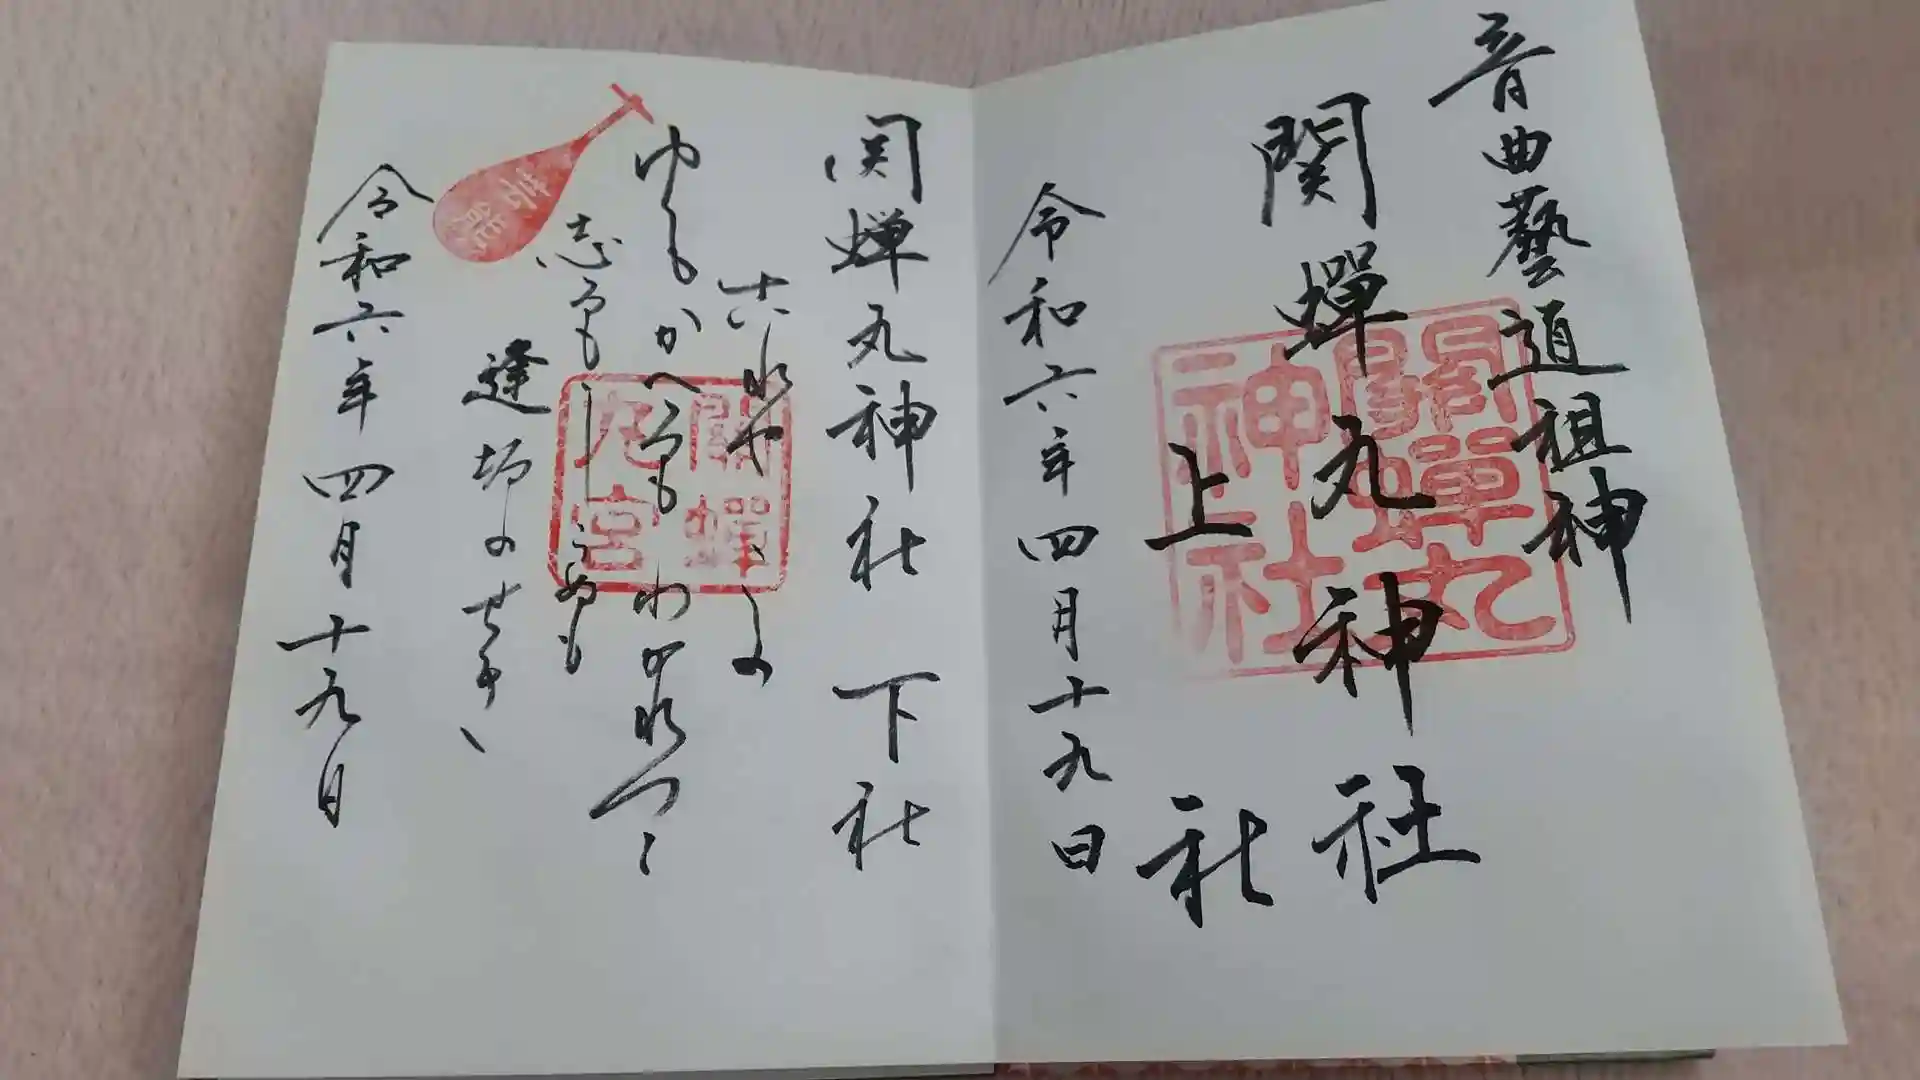 音曲藝道祖神
関蟬丸神社
上社
關蟬丸神社
令和六年四月十九日
関蝉丸神社 下社
これやこの
ゆくもかへるも わかれつゝ
志るもしらぬも
逢坂のせき
關蟬丸宮
令和六年四月十九日